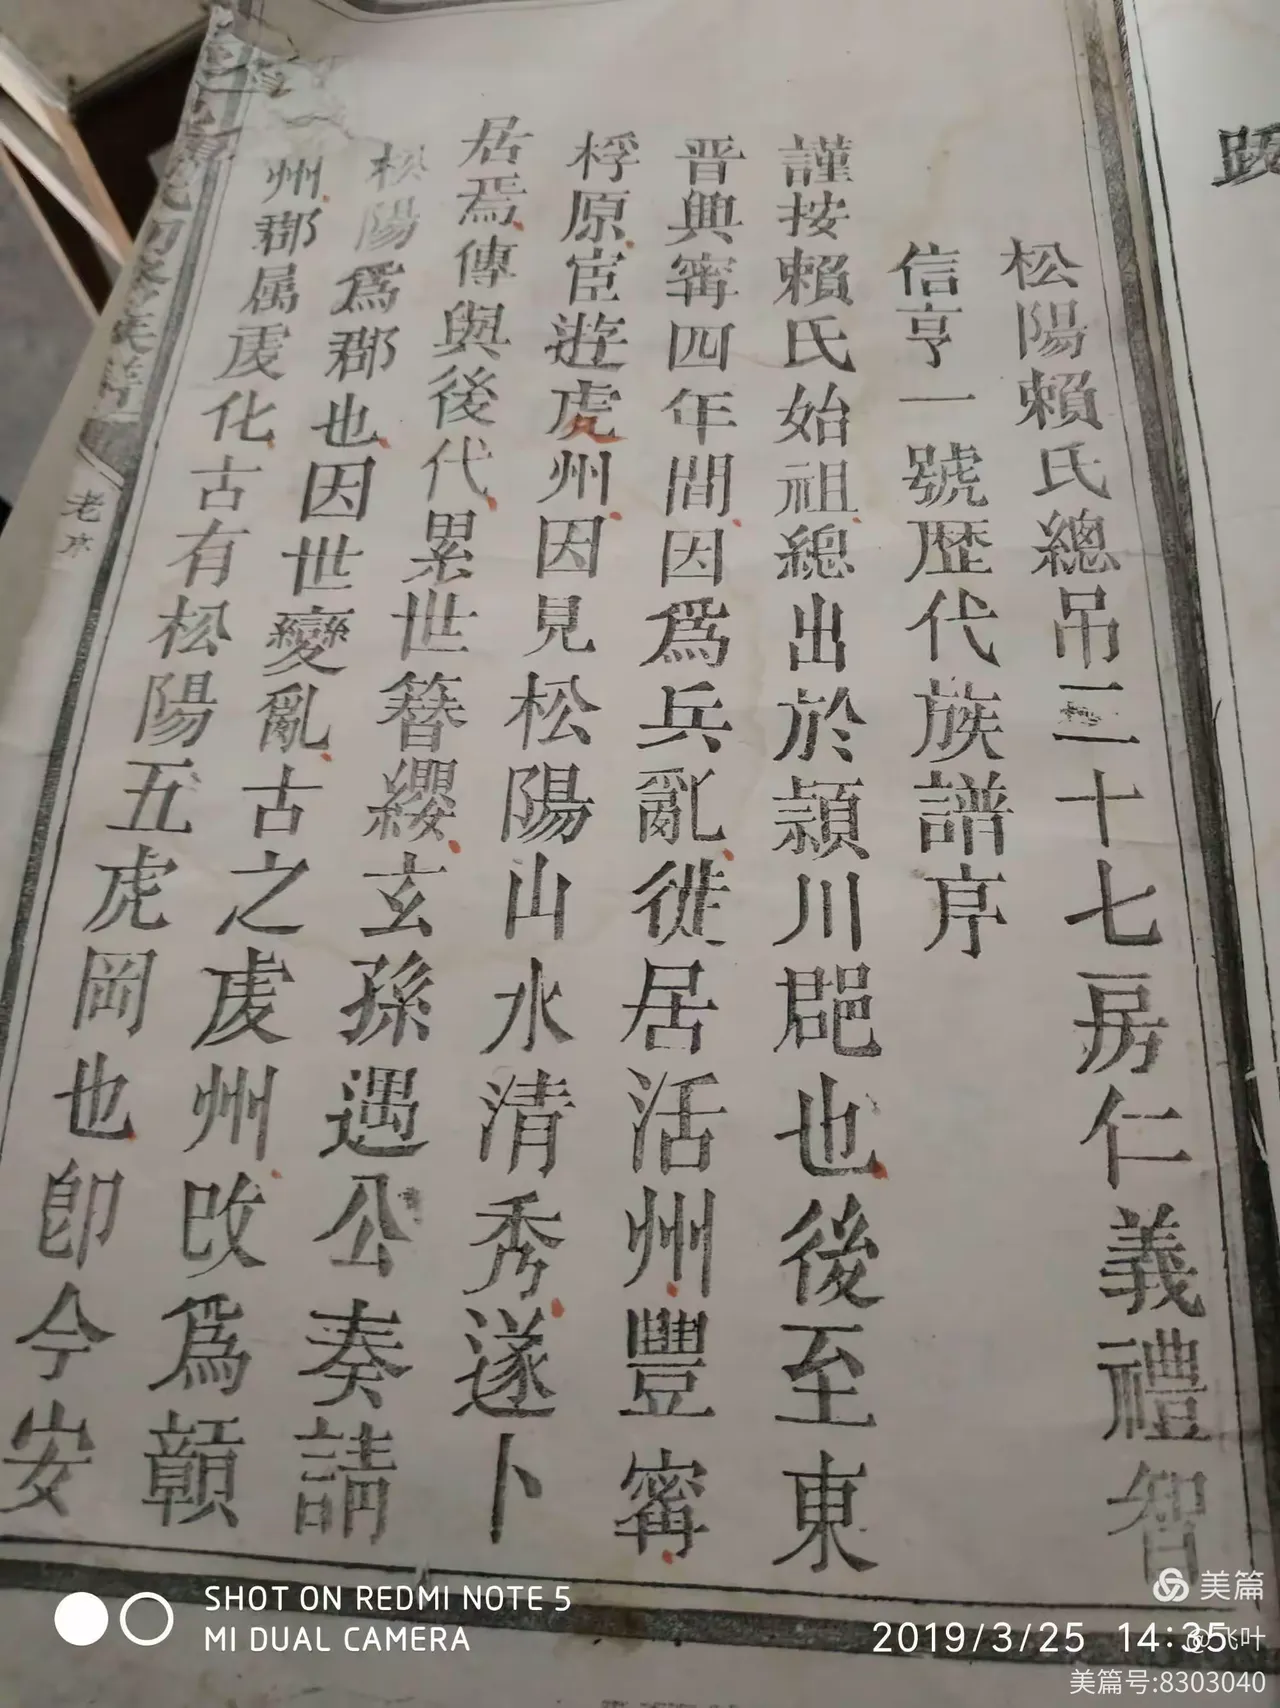 跋
松陽賴氏總吊三十七房仁義禮智
信亨一號歴代族譜序
謹按賴氏始祖總出於頴川郡也後至東
晋興寗四年間因爲兵亂徙居活州豐寗
桴原宦遊虔州因見松陽山水清秀遂卜
居焉傳與後代累世簪纓玄孫遇公奏請
松陽爲郡也因世變亂古之虔州改爲贛
州郡属虔化古有松陽五虎岡也卽今安
老本
SHOT ON REDMI NOTE 5
MI DUAL CAMERA
美篇
2019/3/25 14:35
@飞叶
美篇号:8303040